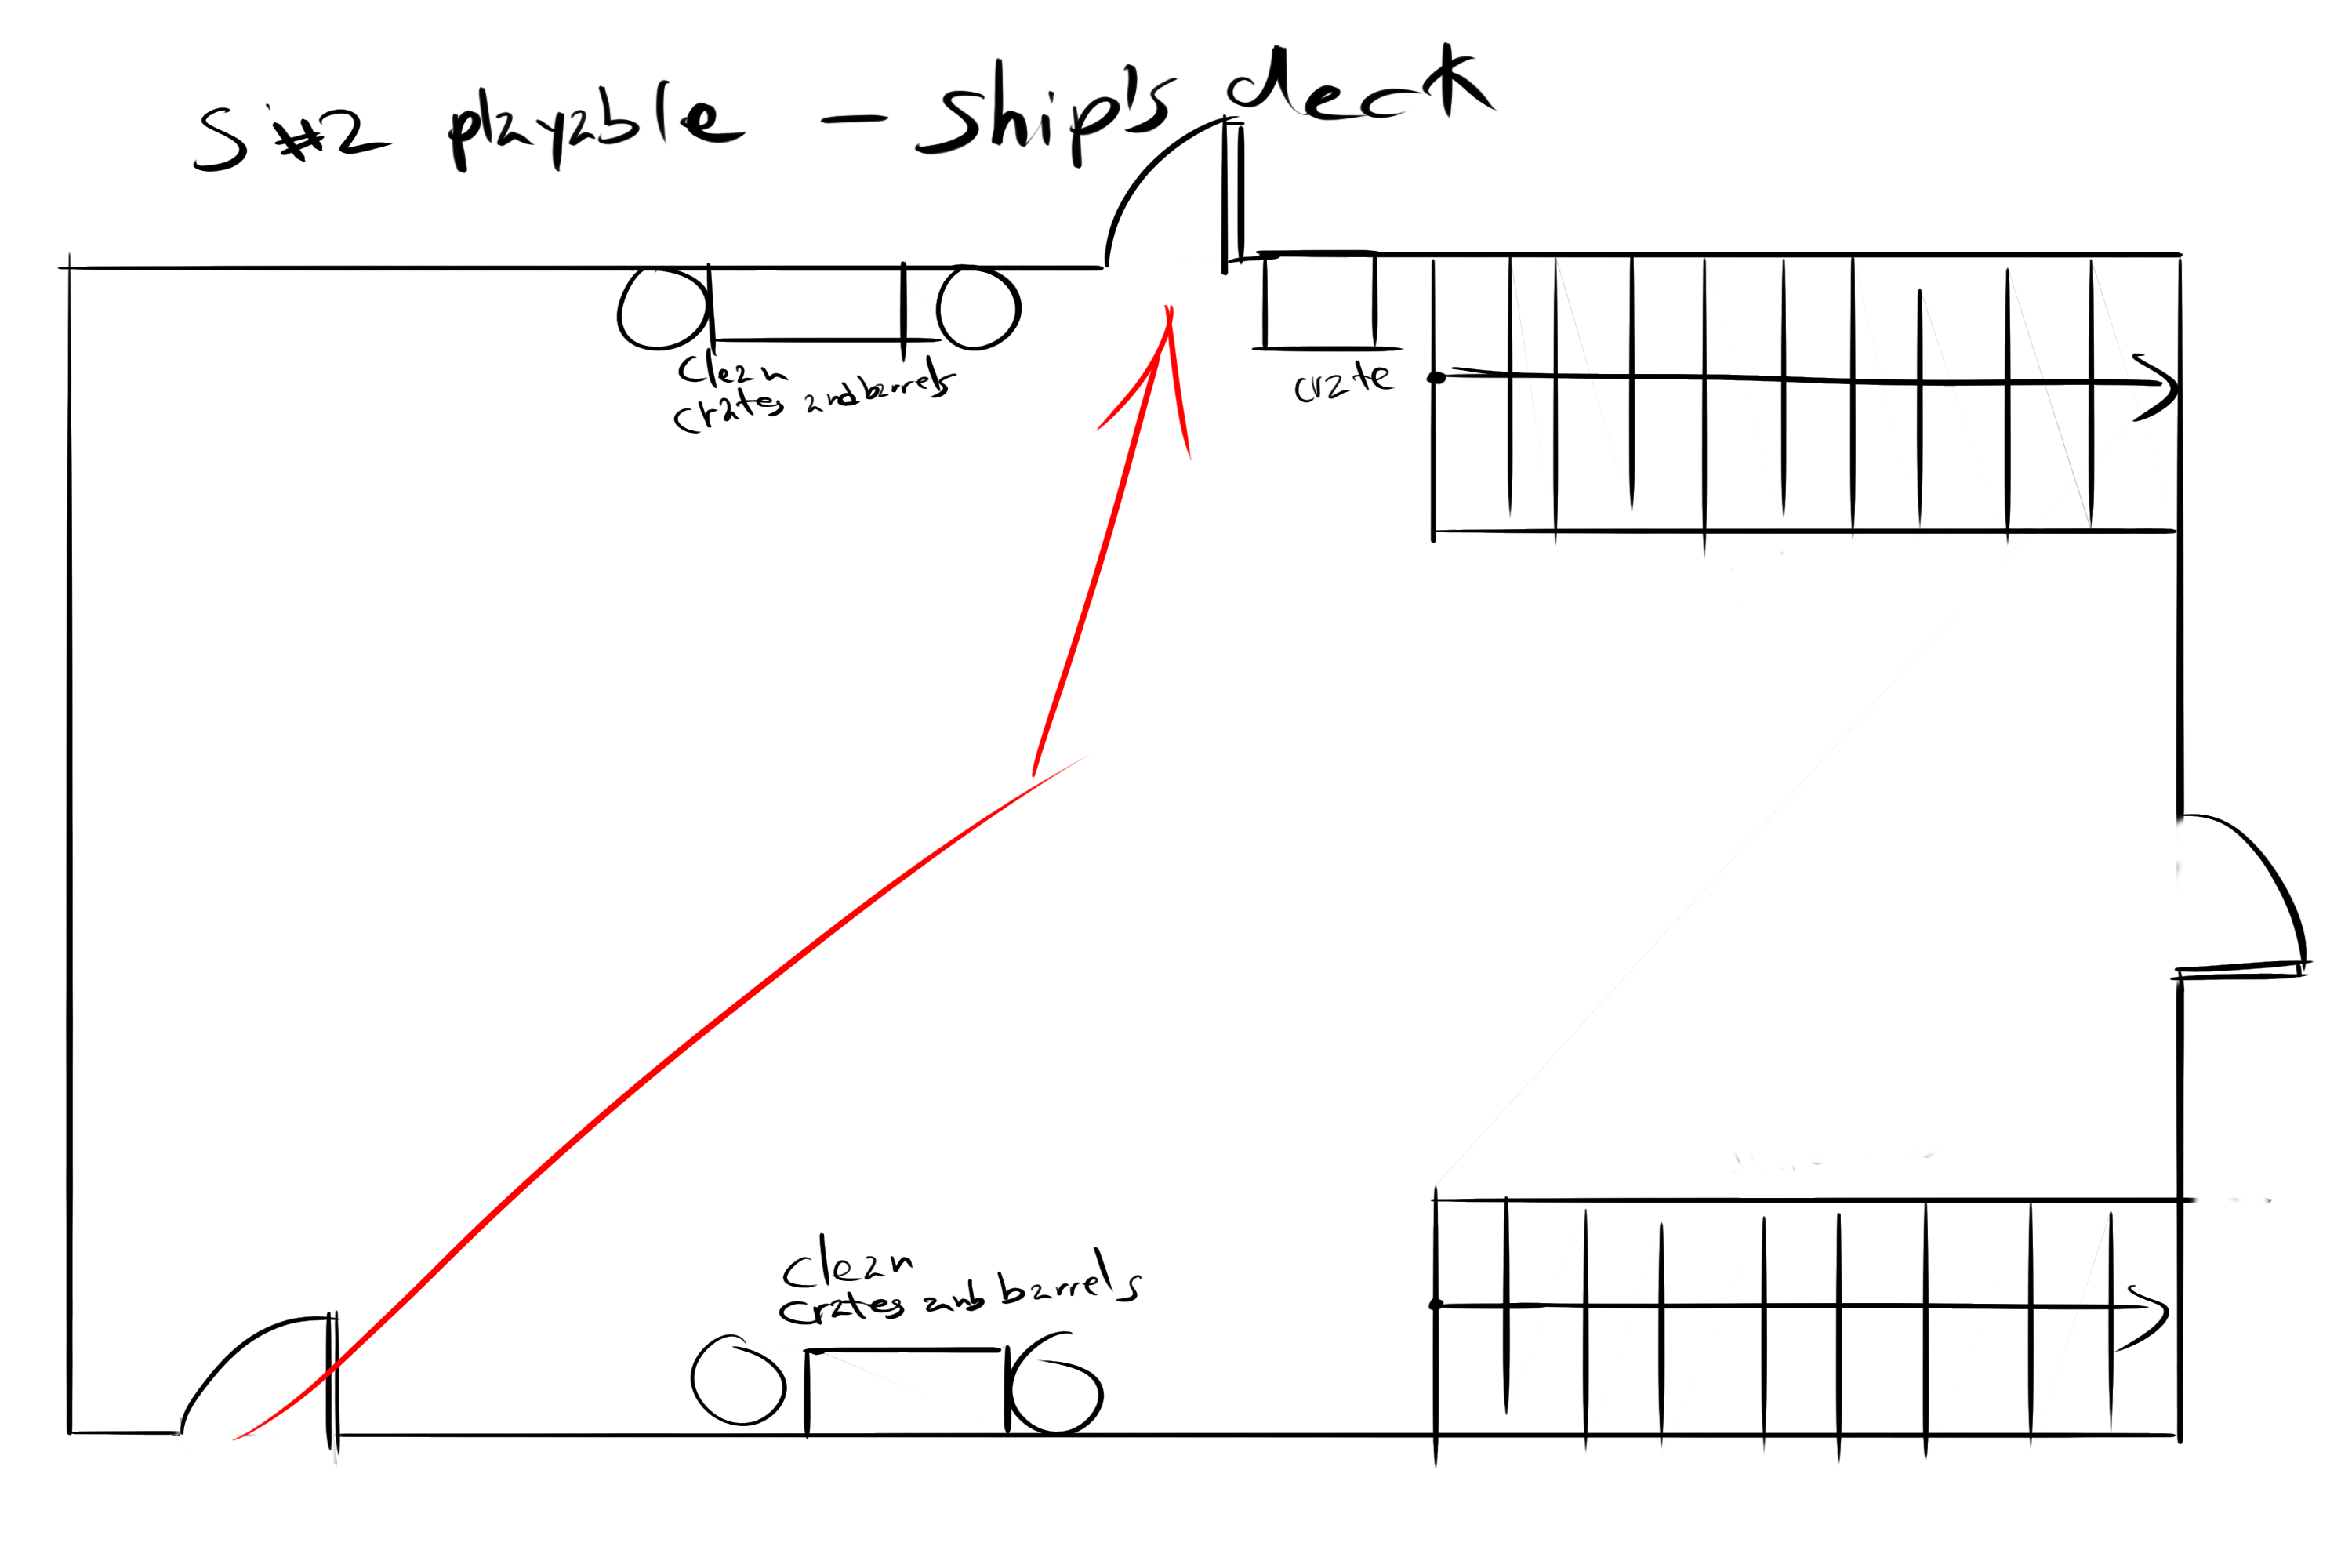 playable - Ship's deck
Clean
crates and barrels
crate
Clean
crates and barrels